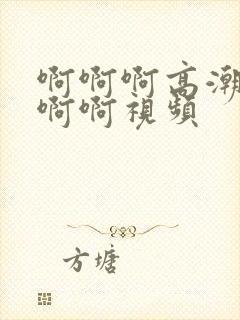 啊啊啊高潮
啊啊視頻
方塘